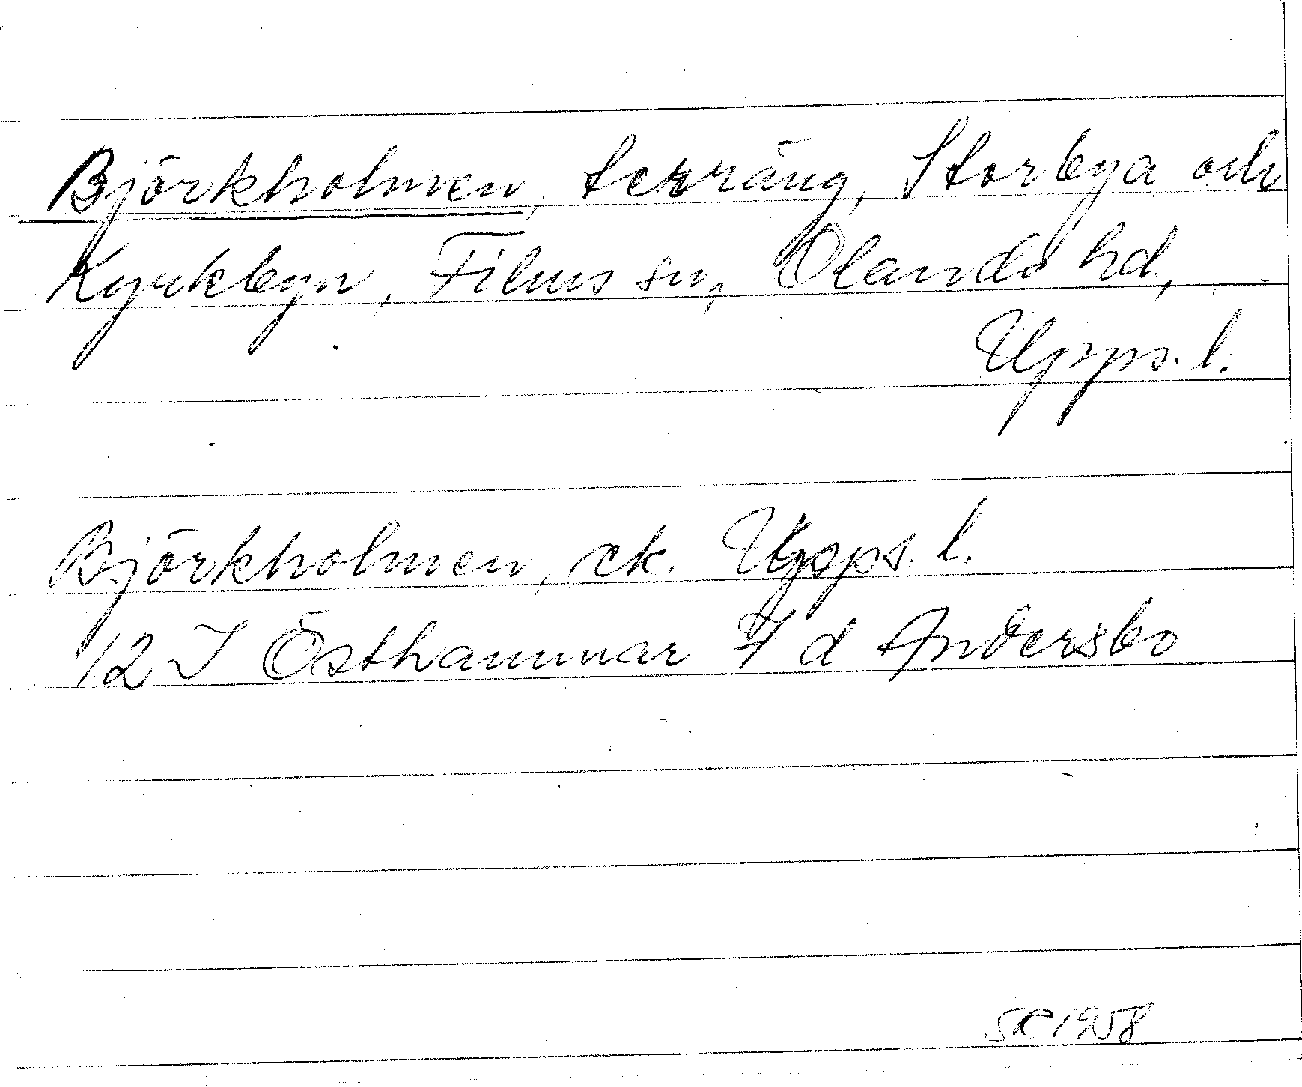 Björkholmen, terräng, Storbya och
Kyrkbyn, Films sn, Olands hd,
Upps. l.
Björkholmen, ek. Upps. l.
12 I Östhammar 7 d Andersbo
SR 1958